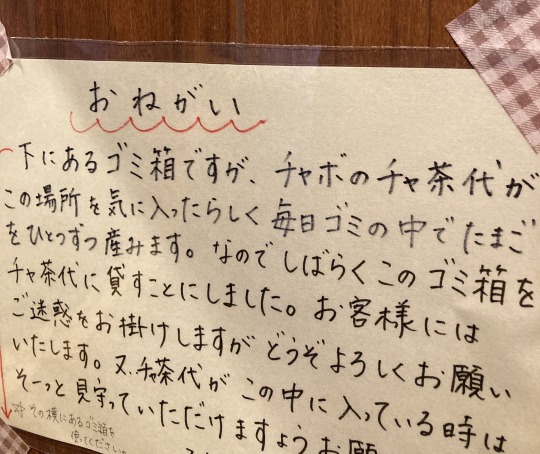 おねがい
下にあるゴミ箱ですが、チャボのチャ茶代が
この場所を気に入ったらしく毎日ゴミの中でたまご
をひとつずつ産みます。なのでしばらくこのゴミ箱を
チャ茶代に貸すことにしました。お客様には
ご迷惑をお掛けしますがどうぞよろしくお願い
いたします。又、チャ茶代がこの中に入っている時は
そーっと見守っていただけますようお願
その横にあるゴミ箱を
使ってくださいの